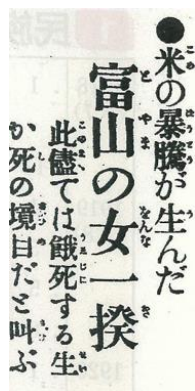 ●米の暴騰が生んだ
富山の女一揆
此儘では餓死する生
か死の境目だと叫ぶ